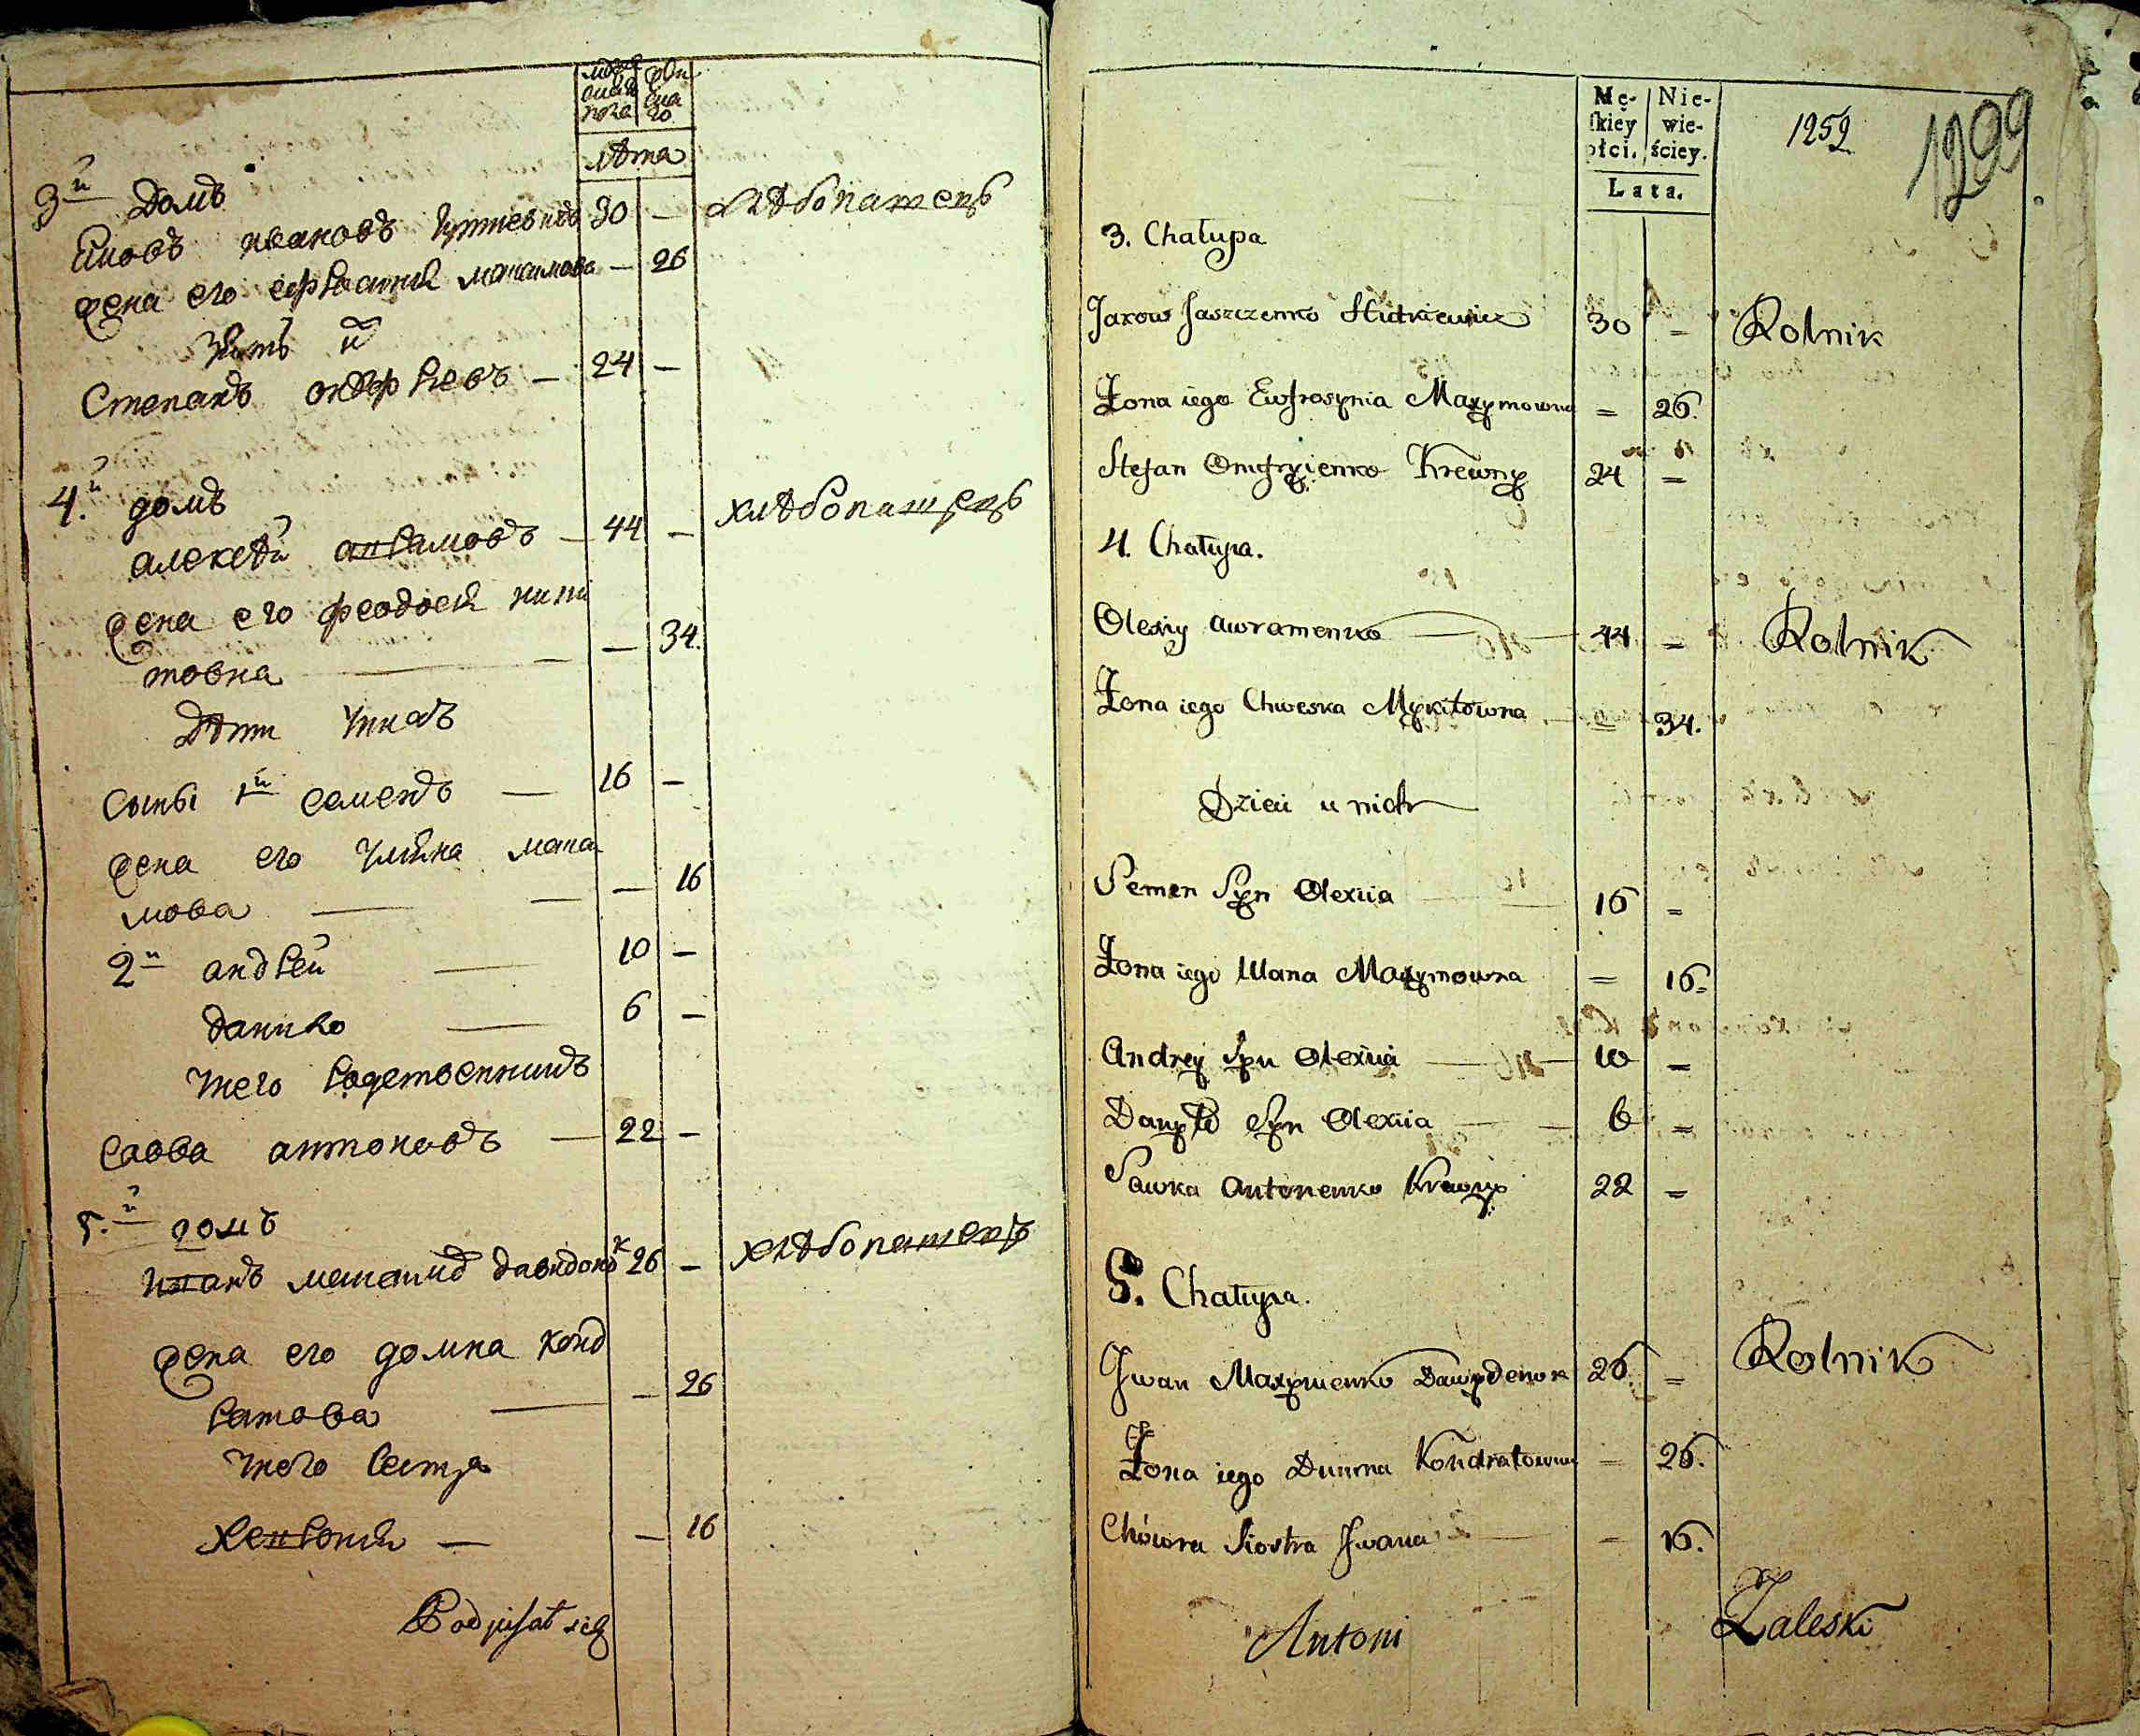 мужеска пола
женска го
лѣта
3й Домъ
Яковъ ивановъ гуткевичъ 30 — хлѣбопашецъ
жена его ефросинія максимова — 26
Степанъ — 24 —
4.й домъ
алексѣй аврамовъ — 44 — хлѣбопашецъ
жена его феодосія ники
товна — 34.
Дѣти у нихъ
сыны 1й семенъ — 16 —
жена его уліяна макси
мова — — 16
2й андрей — 10 —
данило — 6 —
у него родственникъ
савва антоновъ — 22 —
5.й домъ
иванъ максимовъ давидонокъ 26 — хлѣбопашецъ
жена его домна конд
ратова — — 26
у него сестра
хевронія — — 16
Podpisał się
Mę-skiey płci. Nie-wie-ściey.
Lata.
1252
1299
3. Chałupa
Jakow Jaszczenko Hutkiewicz 30 = Rolnik
Żona iego Ewfrosynia Maxymowna = 26.
Stefan Krewny 24 =
4. Chałupa.
Olexiy Awramenko — 44 = Rolnik
Żona iego Chweska Mykitowna — = 34.
Dzieci u nich
Semen Syn Olexiia 16 =
Żona iego Ulana Maxymowna = 16=
Andrey Syn Olexiia — 10 =
Danyło Syn Olexiia — 6 =
Sawka Antonenko Krewny 22 =
5. Chałupa.
Jwan Maxymenko Dawydenok 26. = Rolnik
Żona iego Dumna Kondratowna = 26.
Chówra Siostra Jwana = 16.
Antoni Zaleski